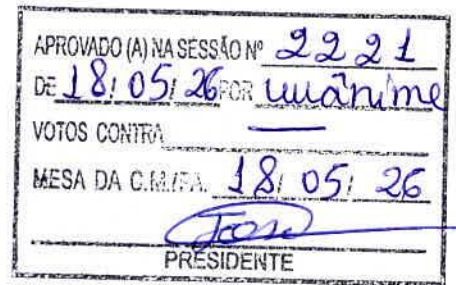 APROVADO (A) NA SESSÃO Nº 2221
DE 18/05/26 POR unânime
VOTOS CONTRA —
MESA DA C.M./P.A. 18/05/26
PRESIDENTE